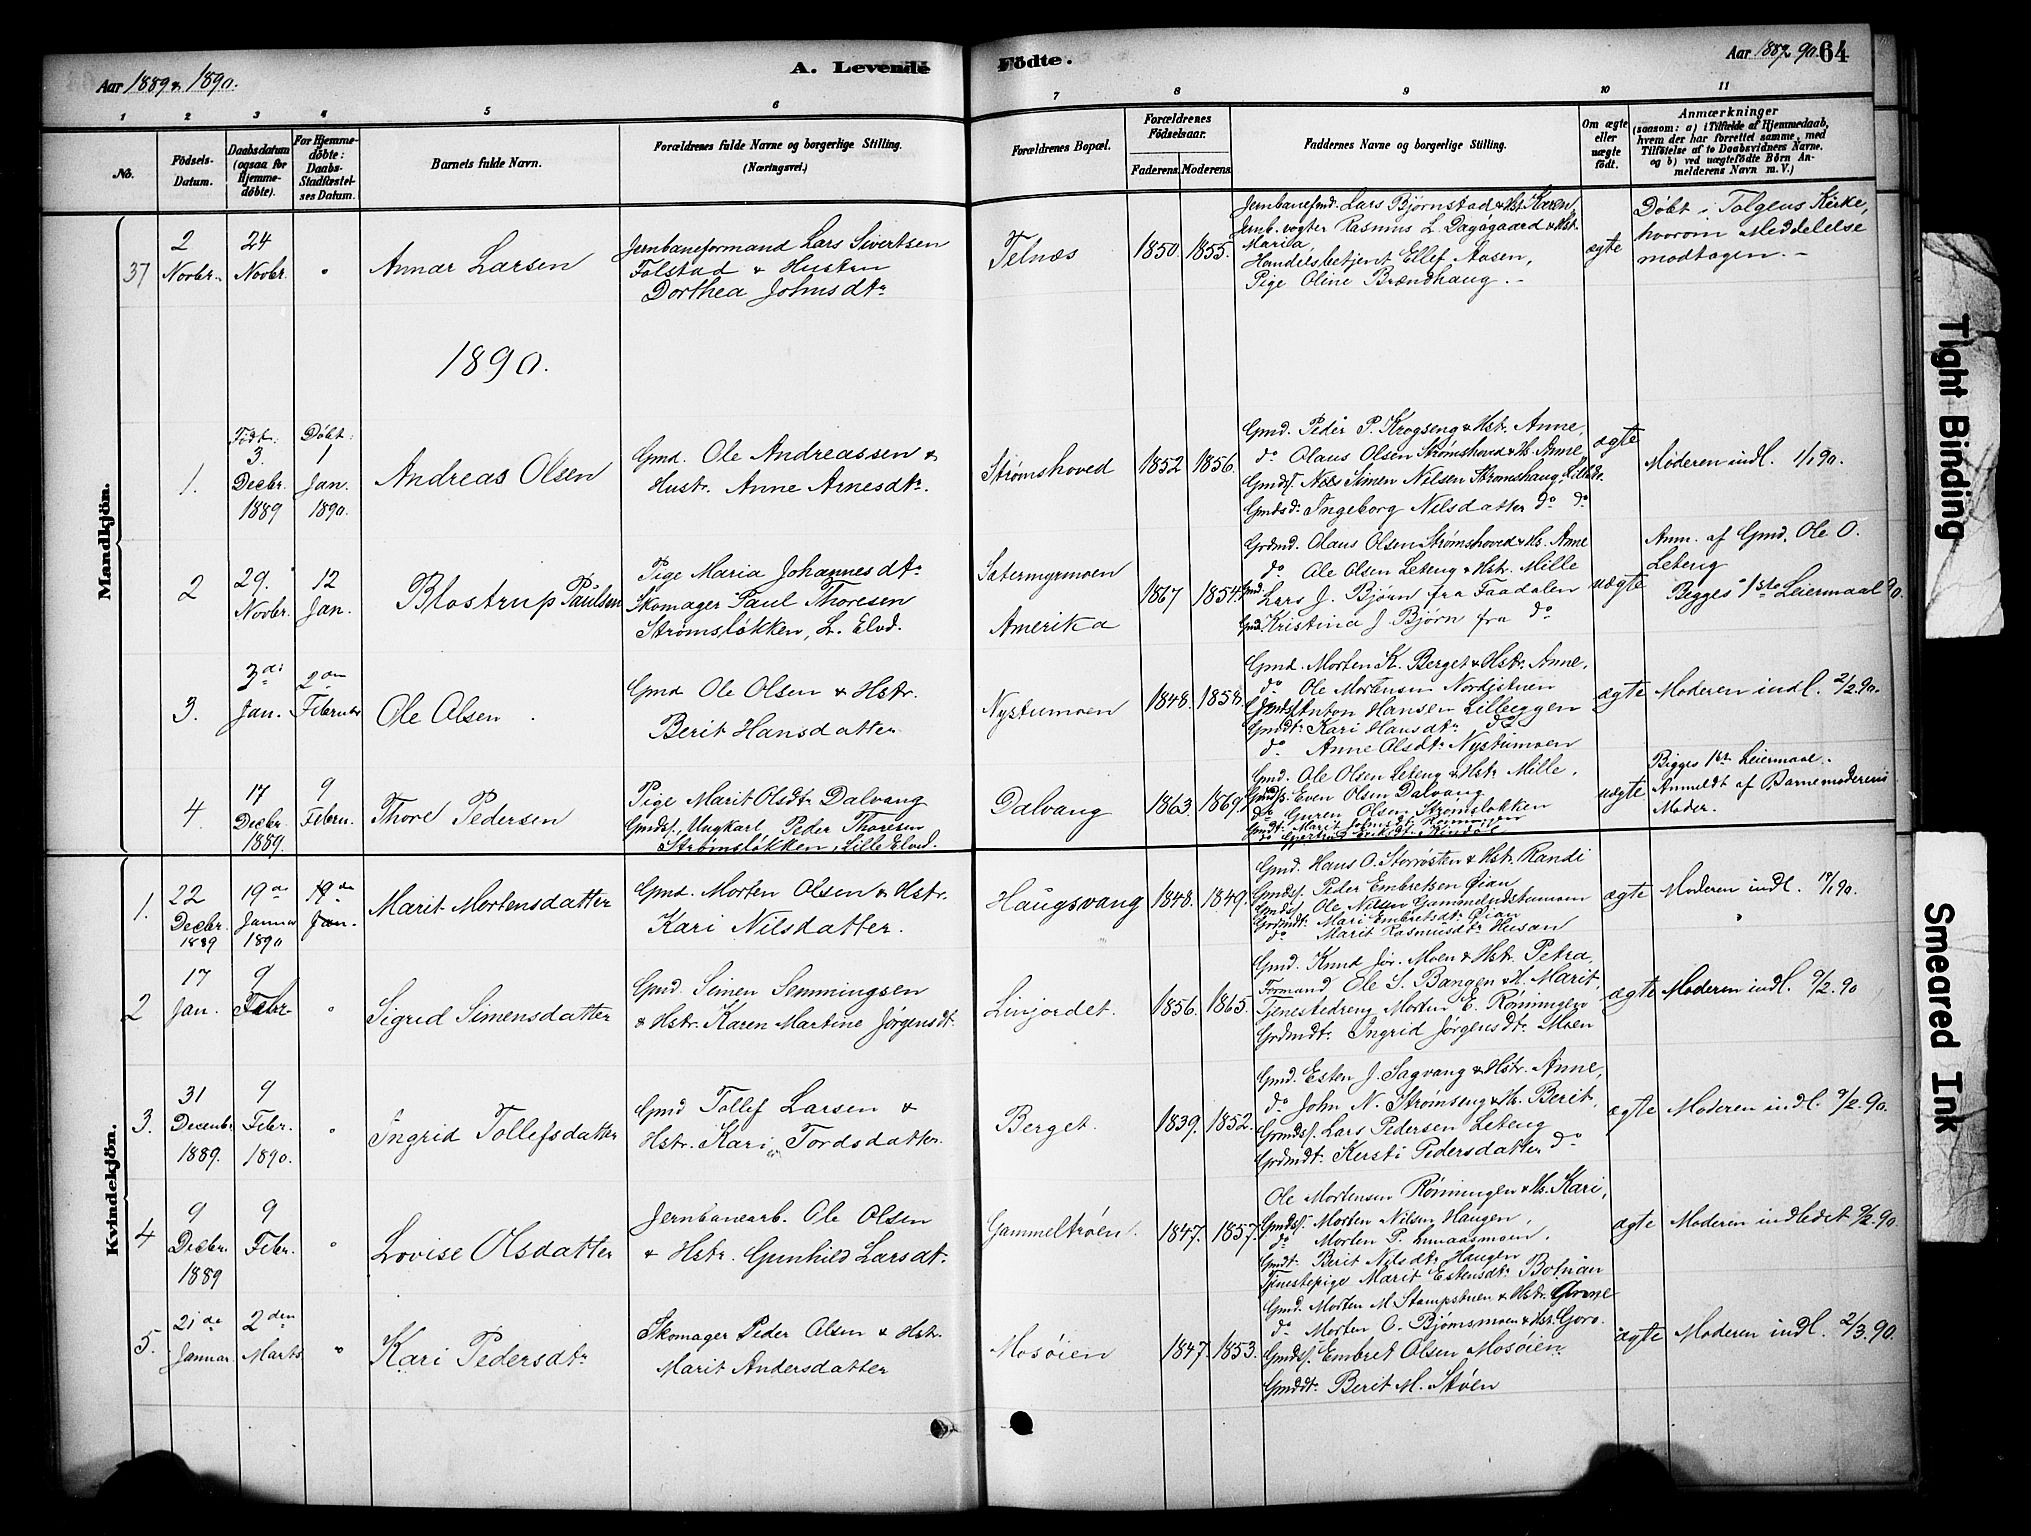 Aar 1889 & 1890.
A. Levende Födte.
Aar 1889 90. 64
1 2 3 4 5 6 7 8 9 10 11
No.
Födsels-Datum.
Daabsdatum (ogsaa for Hjemme-döbte).
For Hjemme-döbte: Daabs-Stadfæstel-ses Datum.
Barnets fulde Navn.
Forældrenes fulde Navne og borgerlige Stilling.
(Næringsvei.)
Forældrenes Bopæl.
Forældrenes Födselsaar.
Faderens. Moderens.
Faddernes Navne og borgerlige Stilling.
Om ægte eller uægte födt.
Anmærkninger
(saasom: a) i Tilfælde af Hjemmedaab, hvem der har forrettet samme, med Tilföielse af to Daabsvidners Navne. og b) ved uægtefödte Börn An-melderens Navn m. V.)
Mandkjön.
37
2 Novbr.
24 Novbr.
"
Annar Larsen
Jernbaneformand Lars Sivertsen
Tolstad & Hustru
Dorthea Johnsdtr
Telnæs
1850. 1855.
Jernbanefmd. Lars Bjørnstad & Hst. Karen,
Jernb.vogter Rasmus L. Dagsgaard & Hst.
Marita,
Handelsbetjent Ellef Aasen,
Pige Oline Brændhaug.
ægte
Døbt i Tolgens Kirke,
hvorom Meddelelse
modtagen.
1890.
1.
Født: 3. Decbr. 1889
Døbt: 1 Jan. 1890.
Andreas Olsen
Gmd. Ole Andreassen &
Hustr. Anne Arnesdtr.
Strømshoved
1852 1856.
Gmd. Peder P. Krogseng & Hstr. Anne,
do Olaus Olsen Strømshoved & H. Anne
Gmdsf. Nils Simen Nilsen Strømshaug,
Gmdsd. Ingeborg Nilsdatter do do
ægte
Moderen indl. 1/1 90.
2
29. Novbr.
12 Jan.
Blostrup Paulsen
Pige Maria Johannesdtr
Skomager Paul Thoresen
Strømsløkken, L. Elvd.
Sætermyrmoen
Amerika
1867 1854.
Grdmd. Olaus Olsen Strømshoved & Hs. Anne
do Ole Olsen Leteng & Hstr. Mille
Lars J. Bjørn fra Faadalen
Kristina J. Bjørn fra do
uægte
Anm. af Gmd. Ole O.
Leteng
Begges 1ste Leiermaal
3.
3di Jan.
2den Februar
Ole Olsen
Gmd Ole Olsen & Hstr.
Berit Hansdatter
Nystumoen
1848. 1858.
Gmd. Morten K. Berget & Hstr. Anne,
do Ole Mortensen Nordistuen
Gmdsf. Anton Hansen Lilleeggen
Gmdt. Kari Hansdtr do
do Anne Olsdtr Nystumoen
ægte
Moderen indl. 2/2 90.
4.
17 Decbr. 1889.
9 Febru.
Thore Pedersen
Pige Marit Olsdtr Dalvang
Gmdsf. Ungkarl Peder Thoresen
Strømsløkken, Lille Elvd.
Dalvang
1863. 1869.
Gmd. Ole Olsen Leteng & Hstr Mille,
Gmdsf. Even Olsen Dalvang
do Guren Olsen Strømsløkken
uægte
Begges 1ste Leiermaal.
Anmeldt af Barnemoderens
Moder.
Kvindekjön.
1.
22 Decbr. 1889
19de Januar 1890
19de Jan.
Marit Mortensdatter
Gmd. Morten Olsen & Hstr.
Kari Nilsdatter.
Haugsvang
1848. 1849.
Gmd. Hans O. Storrøsten & Hstr. Randi
Gmdsf. Peder Embretsen Øian
Gmdsf. Ole Nilsen Gammelnistumoen
Grdmdt. Mari Embretsdtr Øian
do Marit Rasmusdtr Husan
ægte
Moderen indl. 19/1 90.
"
2
17 Jan.
9 Febr.
"
Sigrid Simensdatter
Gmd. Simen Semmingsen
& Hstr. Karen Martine Jørgensdtr.
Linjordet.
1856. 1865.
Gmd. Knud Jør. Moen & Hstr. Petra,
Formand Ole S. Bangen & H. Marit,
Tjenestedreng Morten E. Rønningen
Grdmdt. Ingrid Jørgensdtr Moen
ægte
Moderen indl. 9/2. 90
3.
31 Decembr 1889.
9 Febr. 1890.
"
Ingrid Tollefsdatter
Gmd Tollef Larsen &
Hstr. Kari Tordsdatter.
Berget.
1839. 1852.
Gmd. Esten J. Sagvang & Hstr. Anne,
do John N. Strømseng & H. Berit,
Grmdsf. Lars Pedersen Leteng
Grdmdt. Kersti Pedersdatter do
ægte
Moderen indl. 9/2. 90.
4
9 Decbr. 1889
9 Febr.
"
Lovise Olsdatter
Jernbanearb. Ole Olsen
& Hstr. Gunhild Larsdtr.
Gammeltrøen.
1847. 1857.
Ole Mortensen Rønningen & Hs. Kari,
Gmdsf. Morten Nilsen Haugen,
do Morten P.
Gmdt. Berit Nilsdtr Haugen
Tjenestepige Marit Estensdtr
ægte
Moderen indledet 9/2. 90
5.
21de Januar.
2den Marts
"
Kari Pedersdtr
Skomager Peder Olsen & Hstr
Marit Andersdatter
Mosøien
1847. 1853.
Gmd. Morten M. Stampstuen & Hstr.
do Morten O. Bjørnsmoen & Hst. Goro.
Gmdsf. Embret Olsen Mosøien
Gmddt. Berit M. Støen
ægte
Moderen indl. 2/3. 90.
Tight Binding
Smeared Ink